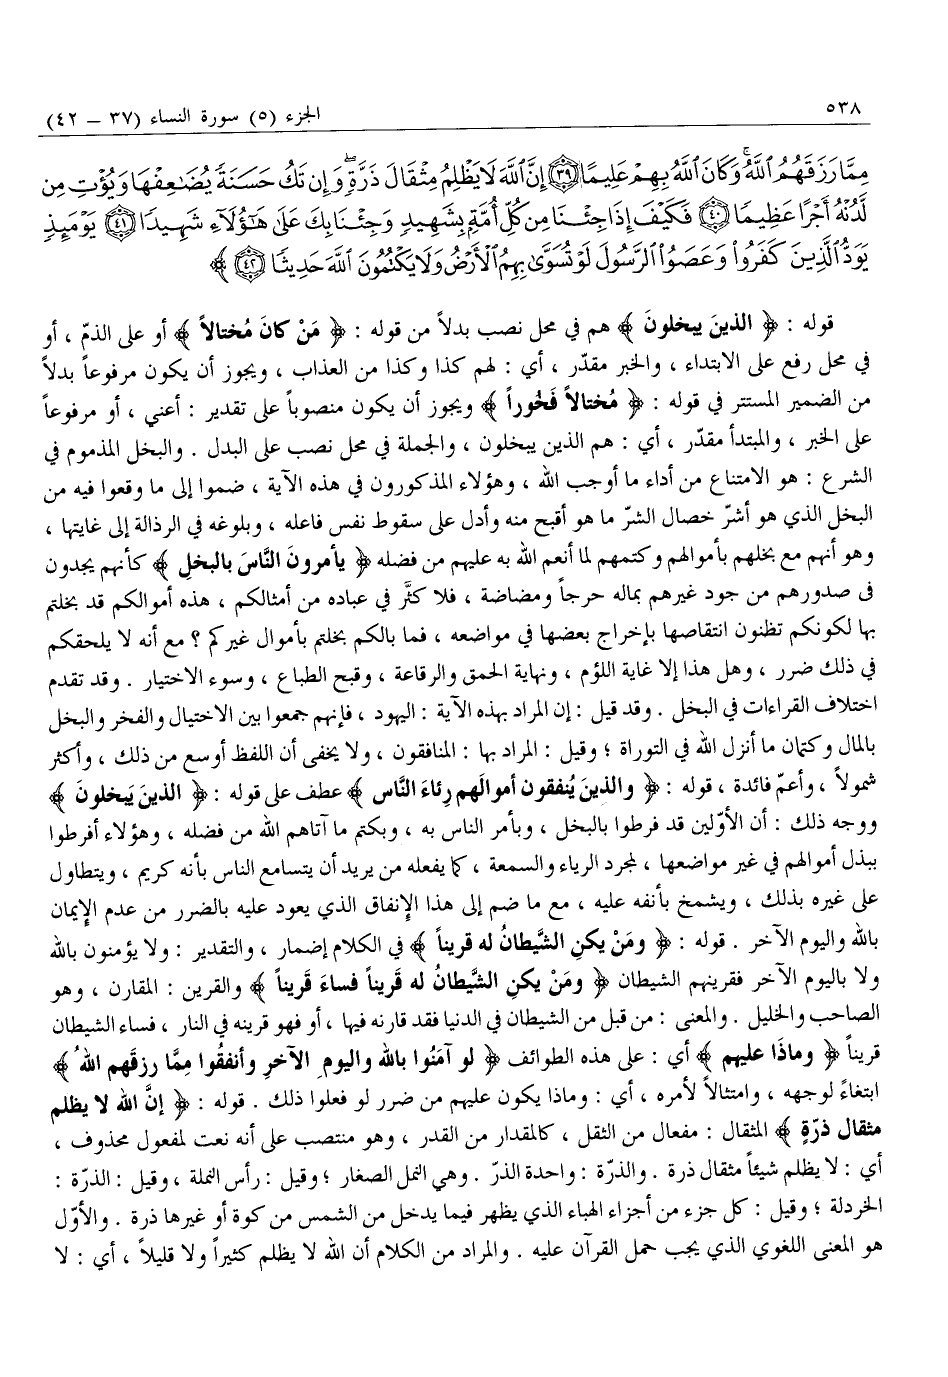 ٥٣٨
الجزء (٥) سورة النساء (٣٧ – ٤٢)
مِمَّا رَزَقَهُمُ ٱللَّهُ ۚ وَكَانَ ٱللَّهُ بِهِمْ عَلِيمًا ﴿٣٩﴾ إِنَّ ٱللَّهَ لَا يَظْلِمُ مِثْقَالَ ذَرَّةٍ ۖ وَإِن تَكُ حَسَنَةً يُضَـٰعِفْهَا وَيُؤْتِ مِن
لَّدُنْهُ أَجْرًا عَظِيمًا ﴿٤٠﴾ فَكَيْفَ إِذَا جِئْنَا مِن كُلِّ أُمَّةٍ بِشَهِيدٍ وَجِئْنَا بِكَ عَلَىٰ هَـٰٓؤُلَآءِ شَهِيدًا ﴿٤١﴾ يَوْمَئِذٍ
يَوَدُّ ٱلَّذِينَ كَفَرُوا۟ وَعَصَوُا۟ ٱلرَّسُولَ لَوْ تُسَوَّىٰ بِهِمُ ٱلْأَرْضُ وَلَا يَكْتُمُونَ ٱللَّهَ حَدِيثًا ﴿٤٢﴾ ﴾
قوله : ﴿ الذينَ يبخلونَ ﴾ هم في محل نصب بدلاً من قوله : ﴿ مَنْ كانَ مُختالاً ﴾ أو على الذمّ ، أو
في محل رفع على الابتداء ، والخبر مقدّر ، أي : لهم كذا وكذا من العذاب ، ويجوز أن يكون مرفوعاً بدلاً
من الضمير المستتر في قوله : ﴿ مُختالاً فَخُوراً ﴾ ويجوز أن يكون منصوباً على تقدير : أعني ، أو مرفوعاً
على الخبر ، والمبتدأ مقدّر ، أي : هم الذين يبخلون ، والجملة في محل نصب على البدل . والبخل المذموم في
الشرع : هو الامتناع من أداء ما أوجب الله ، وهؤلاء المذكورون في هذه الآية ، ضموا إلى ما وقعوا فيه من
البخل الذي هو أشرّ خصال الشرّ ما هو أقبح منه وأدل على سقوط نفس فاعله ، وبلوغه في الرذالة إلى غايتها ،
وهو أنهم مع بخلهم بأموالهم وكتمهم لما أنعم الله به عليهم من فضله ﴿ يأمرونَ النَّاسَ بالبخلِ ﴾ كأنهم يجدون
فى صدورهم من جود غيرهم بماله حرجاً ومضاضة ، فلا كثَّر في عباده من أمثالكم ، هذه أموالكم قد بخلتم
بها لكونكم تظنون انتقاصها بإخراج بعضها في مواضعه ، فما بالكم بخلتم بأموال غيركم ؟ مع أنه لا يلحقكم
في ذلك ضرر ، وهل هذا إلا غاية اللؤم ، ونهاية الحمق والرقاعة ، وقبح الطباع ، وسوء الاختيار . وقد تقدم
اختلاف القراءات في البخل . وقد قيل : إن المراد بهذه الآية : اليهود ، فإنهم جمعوا بين الاختيال والفخر والبخل
بالمال وكتمان ما أنزل الله في التوراة ؛ وقيل : المراد بها : المنافقون ، ولا يخفى أن اللفظ أوسع من ذلك ، وأكثر
شمولاً ، وأعمّ فائدة ، قوله : ﴿ والذينَ يُنفقون أموالَهم رِئاءَ النَّاس ﴾ عطف على قوله : ﴿ الذينَ يَبخلونَ ﴾
ووجه ذلك : أن الأوّلين قد فرطوا بالبخل ، وبأمر الناس به ، وبكتم ما آتاهم الله من فضله ، وهؤلاء أفرطوا
ببذل أموالهم في غير مواضعها ، لمجرد الرياء والسمعة ، كما يفعله من يريد أن يتسامع الناس بأنه كريم ، ويتطاول
على غيره بذلك ، ويشمخ بأنفه عليه ، مع ما ضم إلى هذا الإنفاق الذي يعود عليه بالضرر من عدم الإيمان
بالله واليوم الآخر . قوله : ﴿ ومَنْ يكنِ الشَّيطانُ له قريناً ﴾ في الكلام إضمار ، والتقدير : ولا يؤمنون بالله
ولا باليوم الآخر فقرينهم الشيطان ﴿ ومَنْ يكنِ الشَّيطانُ له قَريناً فساءَ قَريناً ﴾ والقرين : المقارن ، وهو
الصاحب والخليل . والمعنى : من قبل من الشيطان في الدنيا فقد قارنه فيها ، أو فهو قرينه في النار ، فساء الشيطان
قريناً ﴿ وماذَا عليهم ﴾ أي : على هذه الطوائف ﴿ لو آمَنُوا بالله واليومِ الآخرِ وأنفقُوا مِمَّا رزقَهم اللهُ ﴾
ابتغاءً لوجهه ، وامتثالاً لأمره ، أي : وماذا يكون عليهم من ضرر لو فعلوا ذلك . قوله : ﴿ إنَّ الله لا يظلم
مثقال ذرّةٍ ﴾ المثقال : مفعال من الثقل ، كالمقدار من القدر ، وهو منتصب على أنه نعت لمفعول محذوف ،
أي : لا يظلم شيئاً مثقال ذرة . والذرّة : واحدة الذرّ . وهي النمل الصغار ؛ وقيل : رأس النملة ، وقيل : الذرّة :
الخردلة ؛ وقيل : كل جزء من أجزاء الهباء الذي يظهر فيما يدخل من الشمس من كوة أو غيرها ذرة . والأوّل
هو المعنى اللغوي الذي يجب حمل القرآن عليه . والمراد من الكلام أن الله لا يظلم كثيراً ولا قليلاً ، أي : لا